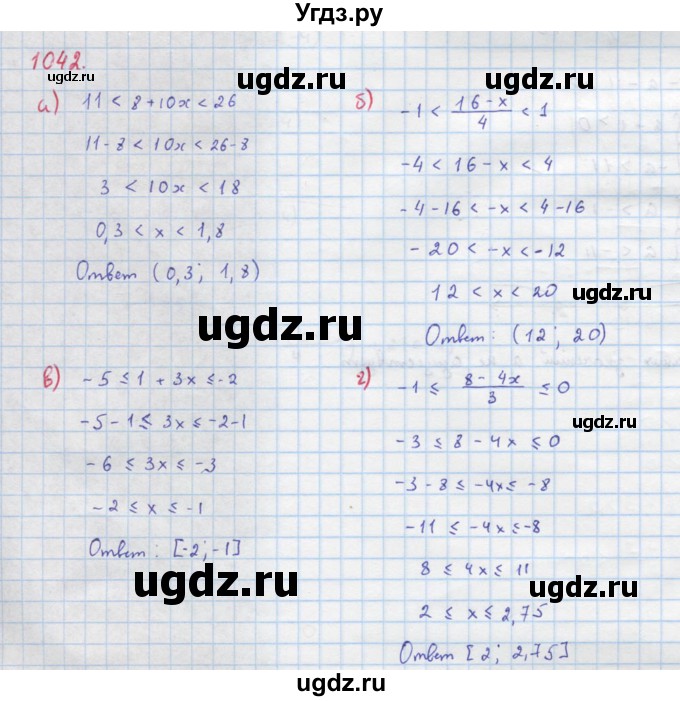 Угдз.ру
1042.
ugdz.ru
ugdz.ru
а) 11 < 8 + 10x < 26
11 - 8 < 10x < 26 - 8
3 < 10x < 18
0,3 < x < 1,8
Ответ (0,3; 1,8)
б) -1 < (16 - x)/4 < 1
-4 < 16 - x < 4
-4 - 16 < -x < 4 - 16
-20 < -x < -12
12 < x < 20
ugdz.ru
Ответ: (12; 20)
ugdz.ru
в) -5 ≤ 1 + 3x ≤ -2
-5 - 1 ≤ 3x ≤ -2 - 1
-6 ≤ 3x ≤ -3
-2 ≤ x ≤ -1
Ответ: [-2; -1]
ugdz.ru
г) -1 ≤ (8 - 4x)/3 ≤ 0
-3 ≤ 8 - 4x ≤ 0
-3 - 8 ≤ -4x ≤ -8
-11 ≤ -4x ≤ -8
8 ≤ 4x ≤ 11
ugdz.ru
2 ≤ x ≤ 2,75
Ответ [2; 2,75]
ugdz.ru